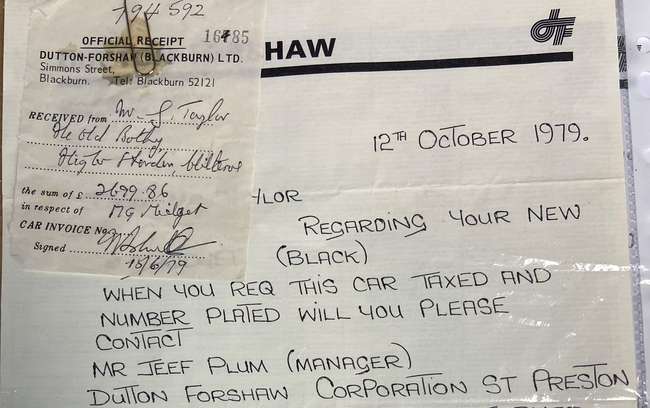 794 592
OFFICIAL RECEIPT 16485
DUTTON-FORSHAW (BLACKBURN) LTD.
Simmons Street,
Blackburn. Tel: Blackburn 52121
RECEIVED from Mr J. Taylor
The Old Bothy,
the sum of £ 2699.86
in respect of MG Midget
CAR INVOICE No.
Signed
15/6/79
SHAW
12TH OCTOBER 1979.
YLOR
REGARDING YOUR NEW
(BLACK)
WHEN YOU REQ THIS CAR TAXED AND
NUMBER PLATED WILL YOU PLEASE
CONTACT
MR JEEF PLUM (MANAGER)
DUTTON FORSHAW CORPORATION ST PRESTON